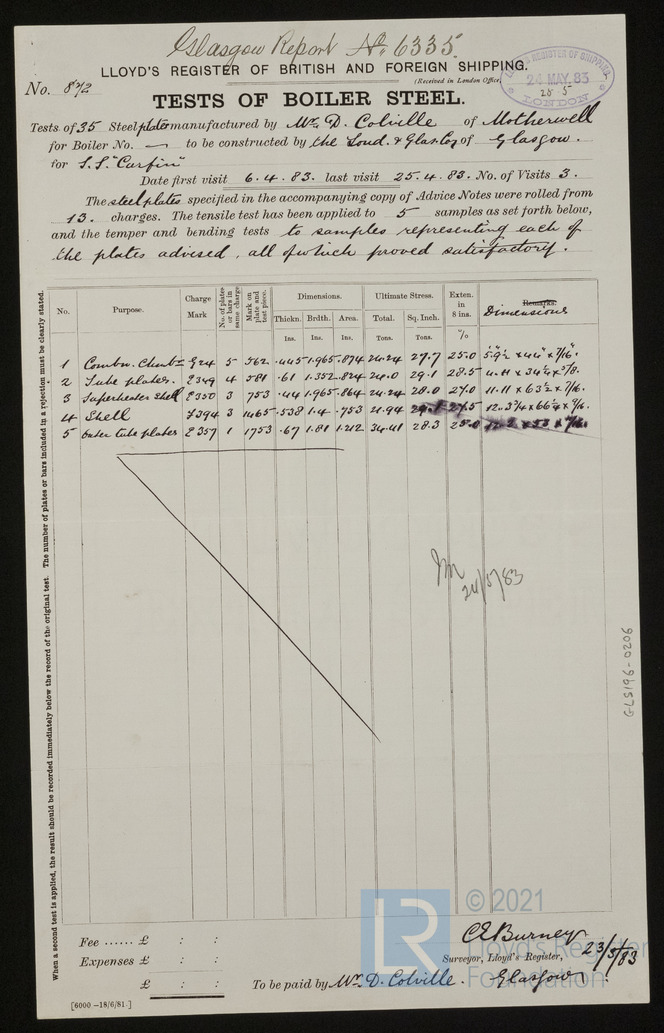 Glasgow Report No. 6335
LLOYD'S REGISTER OF BRITISH AND FOREIGN SHIPPING.
(Received in London Office
LLOYD'S REGISTER OF SHIPPING
24 MAY.83
LONDON
No. 872
TESTS OF BOILER STEEL.
Tests of 35 Steel plates manufactured by Mr. D. Colville of Motherwell
for Boiler No. — to be constructed by the Lond. & Glas. Coy of Glasgow.
for S.S. "Carfin"
Date first visit 6.4.83. last visit 25.4.83. No. of Visits 3.
The steel plates specified in the accompanying copy of Advice Notes were rolled from
13. charges. The tensile test has been applied to 5 samples as set forth below,
and the temper and bending tests to samples representing each of
the plates advised, all of which proved satisfactory.
No. Purpose. Charge Mark No. of plates or bars in same charge Mark on plate and test piece. Dimensions. Ultimate Stress. Exten. in 8 ins. Remarks. Dimensions
Thickn. Brdth. Area. Total. Sq. Inch.
Ins. Ins. Ins. Tons. Tons. %
1 Combn. Chmbr 5 562 .445 1.965 .874 24.24 27.7 25.0
2 Tube plates. 4 581 .61 1.352 .824 24.0 29.1 28.5
3 Superheater Shell 3 753 .44 1.965 .864 24.24 28.0 27.0
4 Shell 3 1465 .538 1.4 .753 21.94 27.5
5 Outer tube plates 1 1753 .67 1.81 1.212 34.41 28.3 25.0
When a second test is applied, the result should be recorded immediately below the record of the original test. The number of plates or bars included in a rejection must be clearly stated.
24/5/83
GLS196-0206
© 2021
LR
Lloyd's Register
Foundation
Fee ...... £ : :
Expenses £ : :
£ : :
C E Burney
Surveyor, Lloyd's Register, 23/5/83
To be paid by Mr. D. Colville. Glasgow
[6000—18/6/81.]